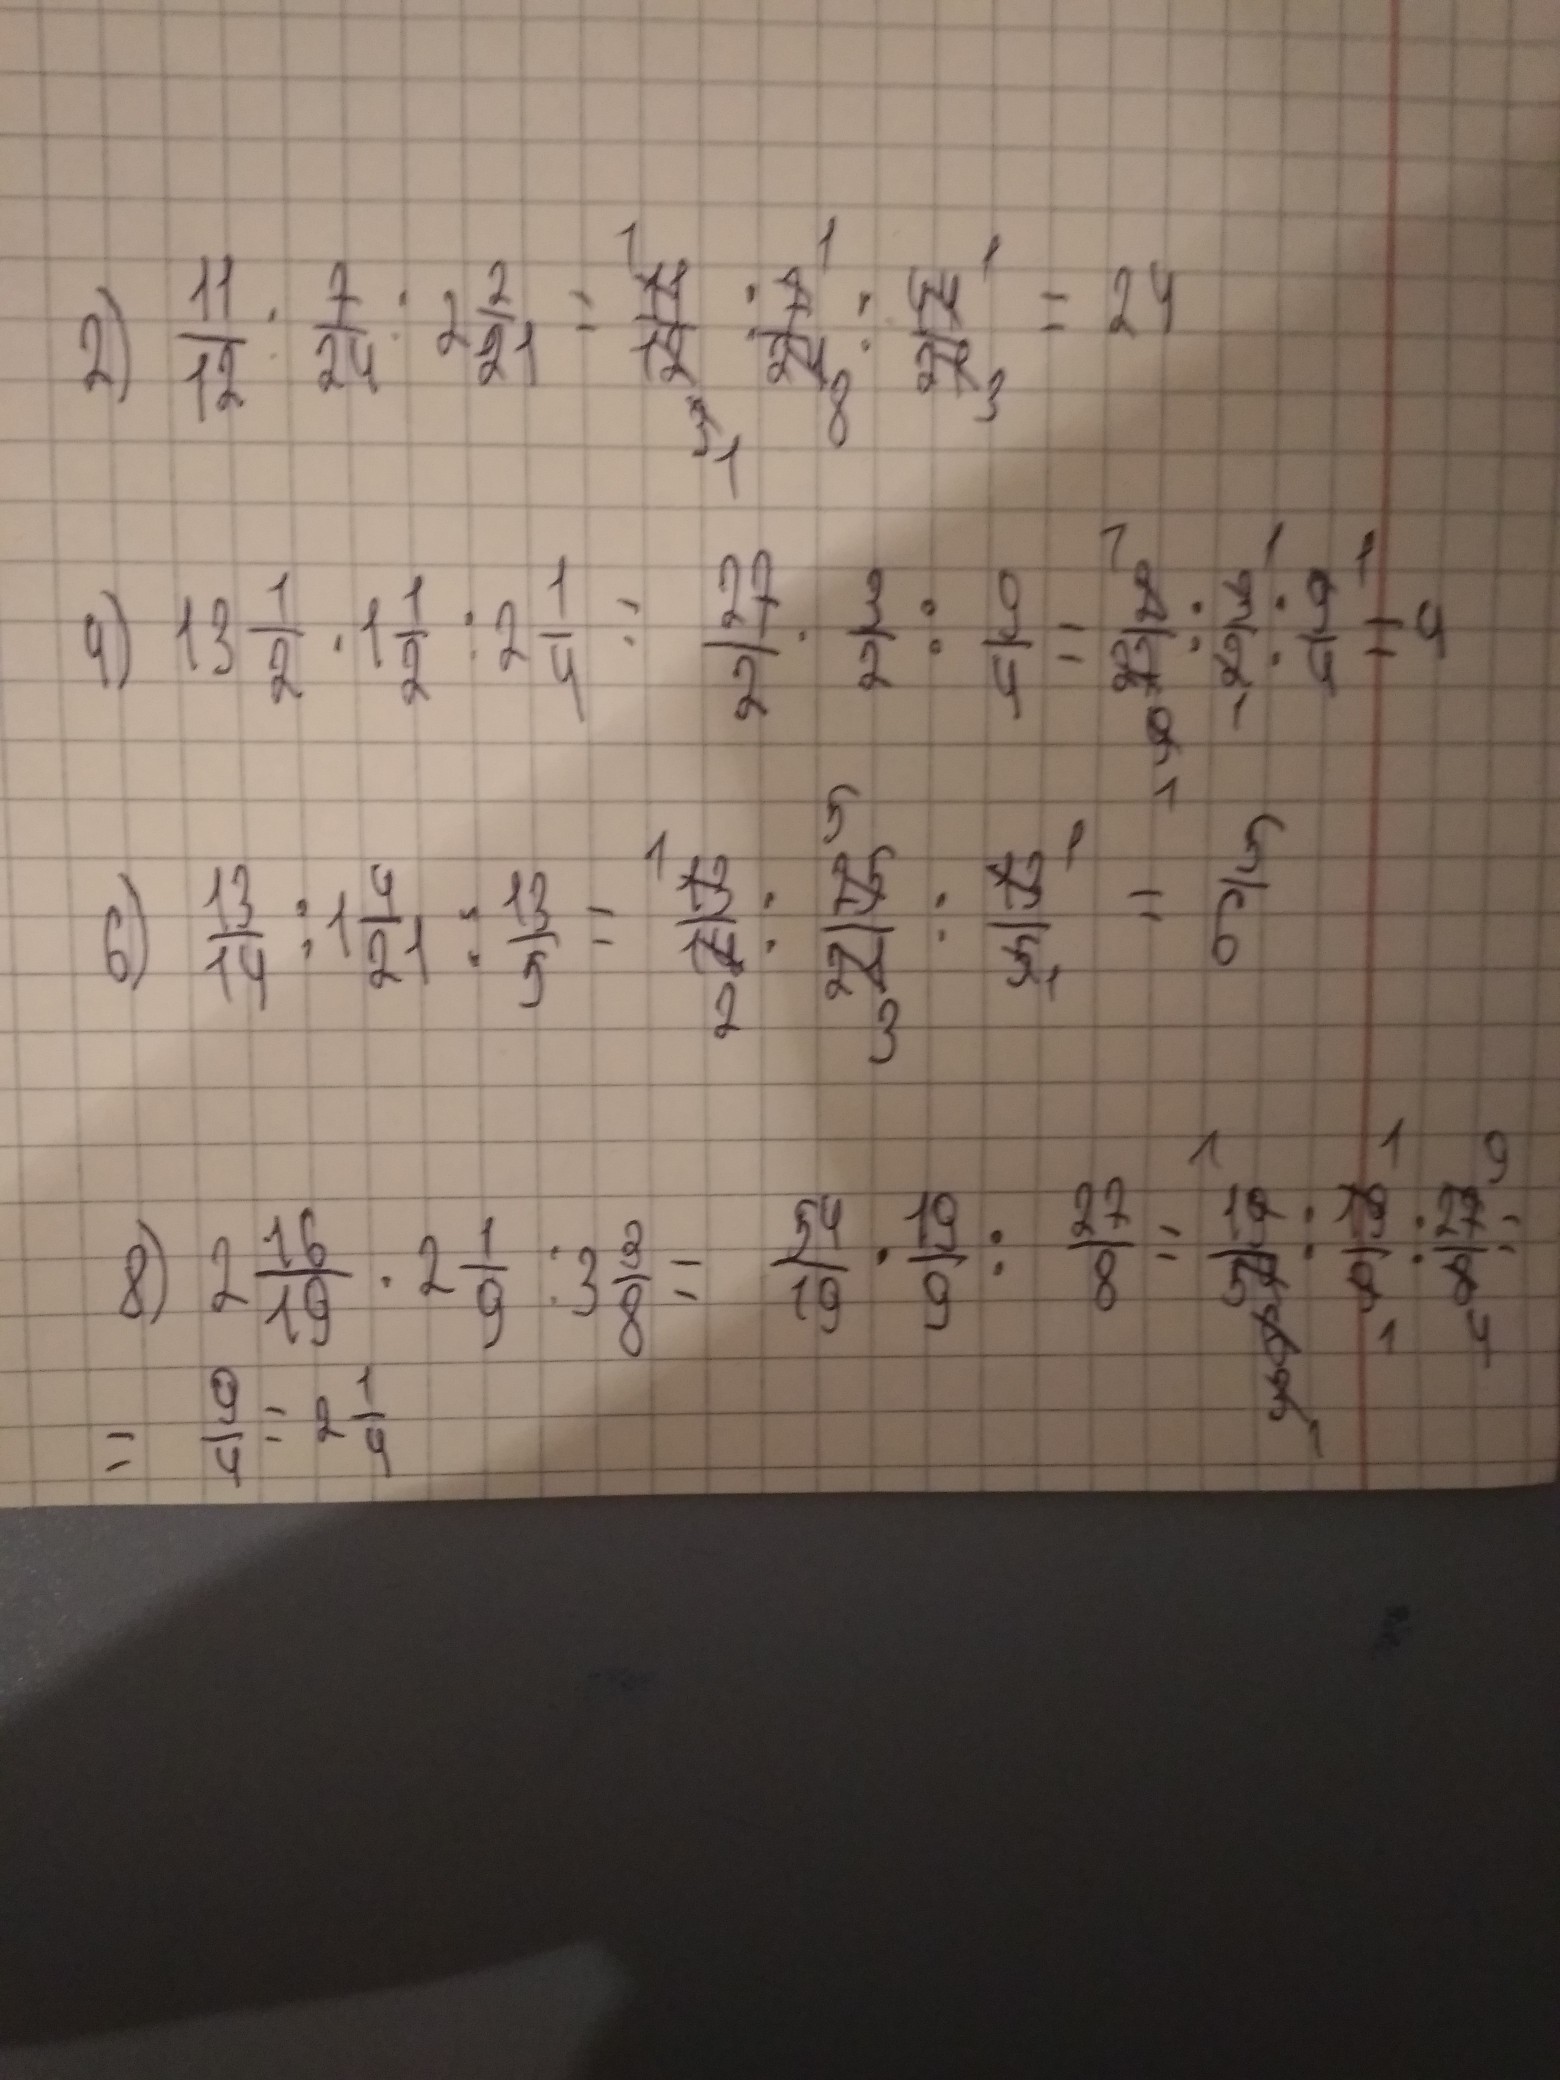 2) 11/12 : 7/24 : 2 2/21 = 11/12 : 7/24 : 44/21 = 24
4) 13 1/2 · 1 1/2 : 2 1/4 = 27/2 · 3/2 : 9/4 = : 3/2 : 9/4 = 4
6) 13/14 : 1 4/21 : 13/5 = 13/14 : 25/21 : 13/5 = 6/5
8) 2 16/19 · 2 1/9 : 3 3/8 = 54/19 · 19/9 : 27/8 = 19/54 : 19/9 : 27/8 =
= 9/4 = 2 1/4